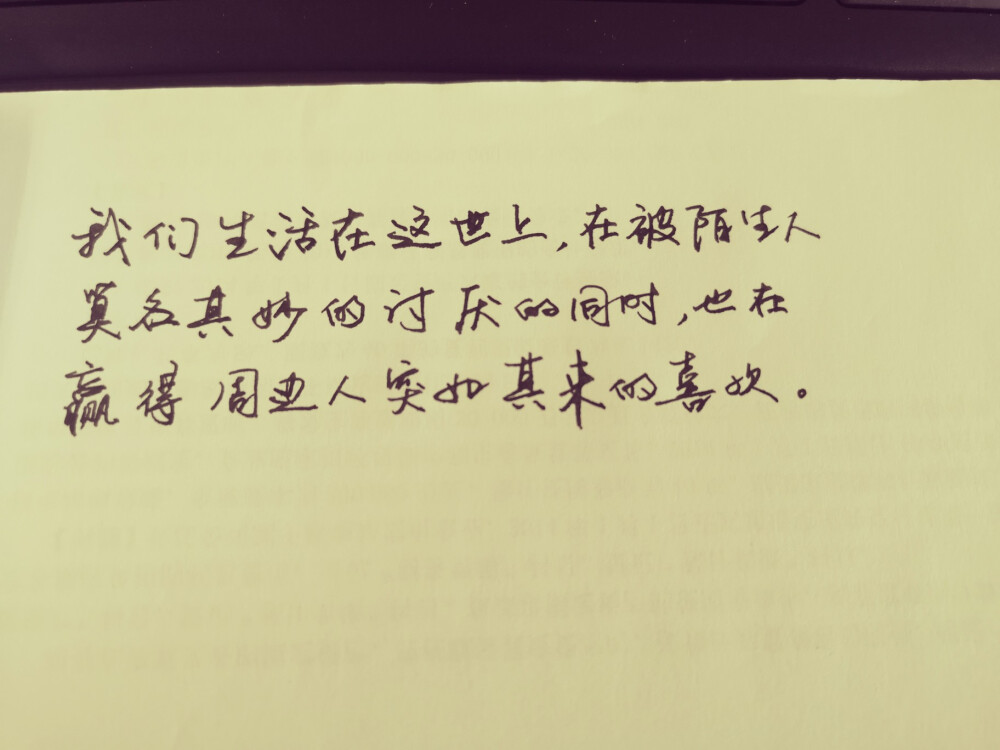 我们生活在这世上,在被陌生人
莫名其妙的讨厌的同时,也在
赢得周边人突如其来的喜欢。